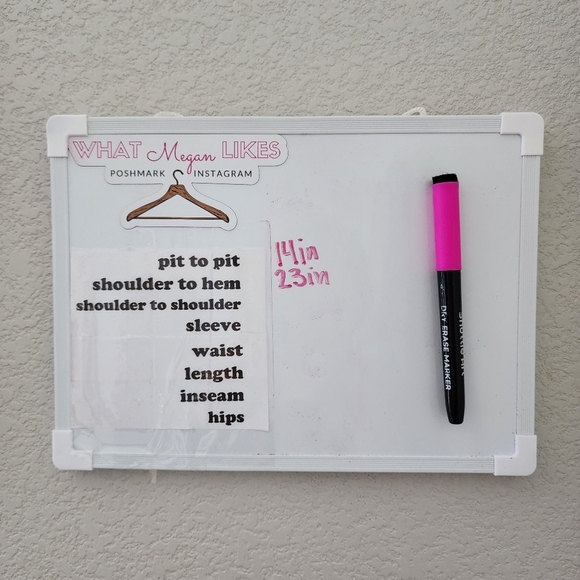 WHAT Megan LIKES
POSHMARK INSTAGRAM
pit to pit 14in
shoulder to hem 23in
shoulder to shoulder
sleeve
waist
length
inseam
hips
Shuttle Art
DRY ERASE MARKER